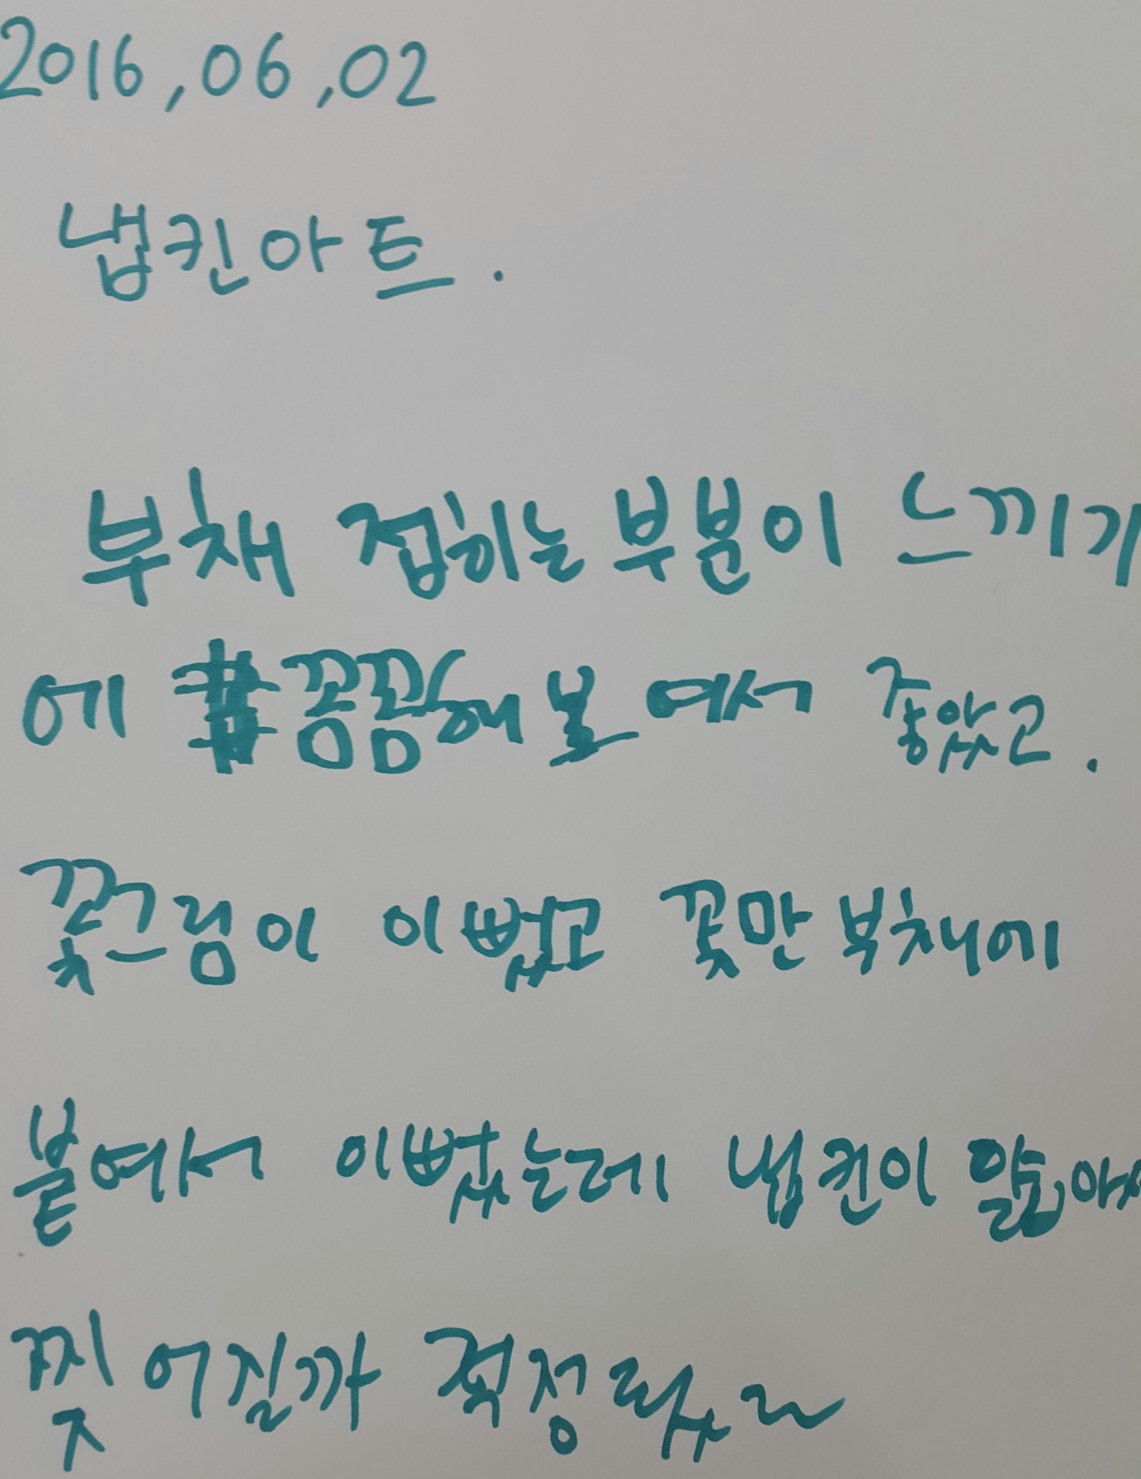 2016,06,02
냅킨아트.
부채 접히는 부분이 느끼기
에 꼼꼼해 보여서 좋았고.
꽃그림이 이뻤고 꽃만 부채에
붙여서 이뻤는데 냅킨이 얇아서
찢어질까 걱정됬고